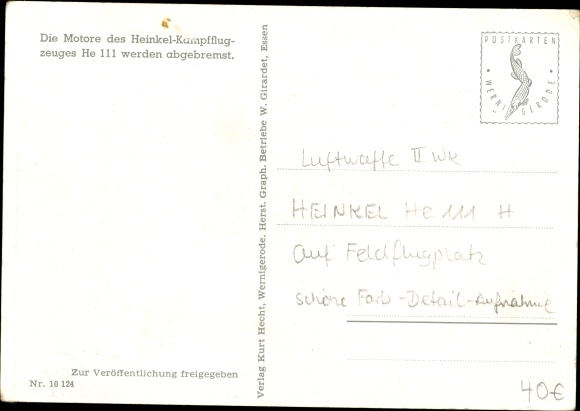 Die Motore des Heinkel-Kampfflug-
zeuges He 111 werden abgebremst.
POSTKARTEN
WERNIGERODE
Verlag Kurt Hecht, Wernigerode. Herst. Graph. Betriebe W. Girardet, Essen
Luftwaffe II Wk
HEINKEL He 111 H
auf Feldflugplatz
schöne Farb-Detail-Aufnahme
Zur Veröffentlichung freigegeben
Nr. 10 124
40€